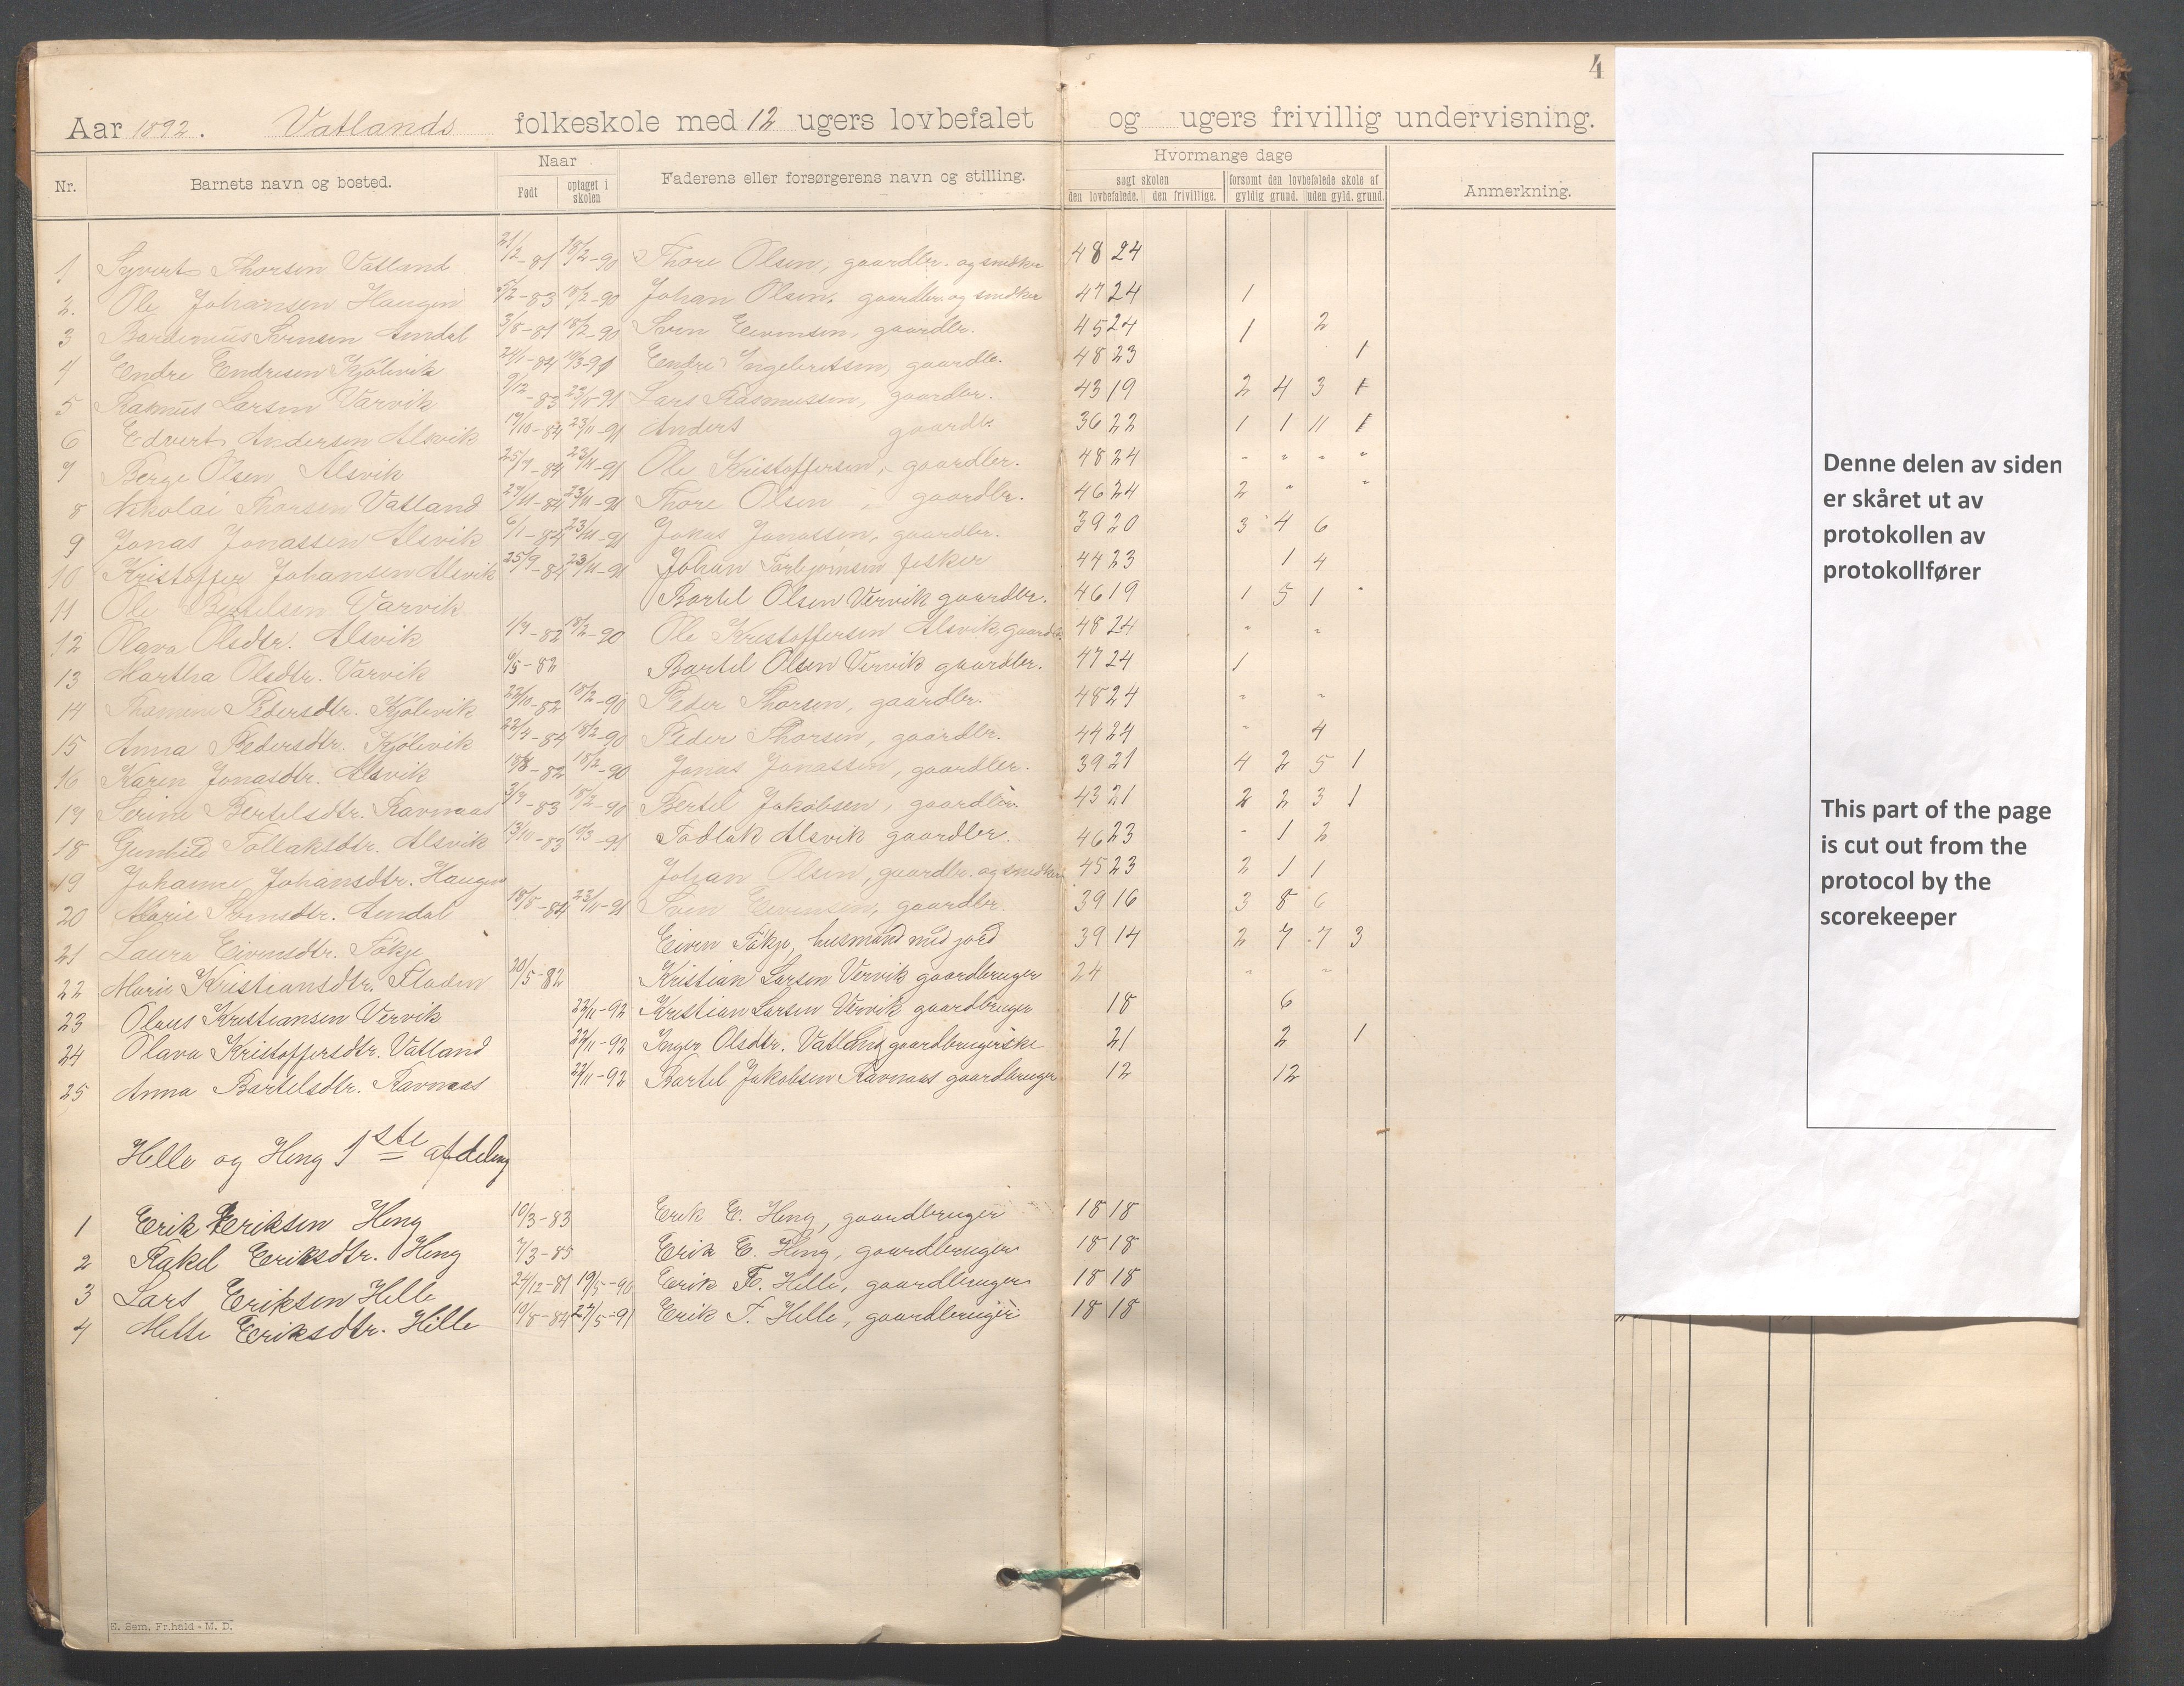 4
Aar 1892. Vatlands folkeskole med 12 ugers lovbefalet og ugers frivillig undervisning.
Nr. Barnets navn og bosted. Naar Født optaget i skolen Faderens eller forsørgerens navn og stilling. Hvormange dage søgt skolen den lovbefalede. den frivillige. forsømt den lovbefalede skole af gyldig grund. uden gyld. grund. Anmerkning.
1. Syvert Thorsen Vatland 21/2-81 18/2-90 Thore Olsen, gaardbr. og snedker 48 24
2. Ole Johansen Haugen 5/2-83 18/2-90 Johan Olsen, gaardbr. og snedker 47 24 1
3 Svensen Amdal 3/8-81 18/2-90 Sven Eivensen, gaardbr. 45 24 1 2
4 Endre Endresen Kjölevik 24/1-84 10/3-91 Endre Ingebretsen, gaardbr. 48 23 1
5 Rasmus Larsen Varvik 9/12-83 23/11-91 Lars Rasmussen, gaardbr. 43 19 2 4 3 1
6 Edvert Andersen Alsvik 19/10-84 23/11-91 Anders gaardb. 36 22 1 1 11 1
7 Berge Olsen Alsvik 25/7-84 23/11-91 Ole Kristoffersen, gaardbr. 48 24 " " " "
8 Nikolai Thorsen Vatland 27/11-84 23/11-91 Thore Olsen, gaardbr. 46 24 2 " "
9 Jonas Jonassen Alsvik 6/1-84 23/11-91 Jonas Jonassen, gaardbr. 39 20 3 4 6
10 Kristoffer Johansen Alsvik 25/9-84 23/11-91 Johan Torbjörnsen fisker 44 23 1 4
11 Ole Bertelsen Varvik. Bartel Olsen Vervik gaardbr. 46 19 1 5 1 "
12 Olava Olsdtr. Alsvik 1/7-82 18/2-90 Ole Kristoffersen Alsvik, gaardbr. 48 24 " "
13 Martha Olsdtr. Varvik 6/5-82 Bartel Olsen Vervik gaardbr. 47 24 1
14 Thomine Pedersdtr. Kjölevik 22/10-82 18/2-90 Peder Thorsen, gaardbr. 48 24 " "
15 Anna Pedersdtr. Kjölevik 22/4-84 18/2-90 Peder Thorsen, gaardbr. 44 24 " 4
16 Karen Jonasdtr. Alsvik 18/8-82 18/2-90 Jonas Jonassen, gaardbr. 39 21 4 2 5 1
17 Serine Bertelsdtr. Ravnaas 3/7-83 18/2-90 Bertel Jakobsen, gaardbr. 43 21 2 2 3 1
18 Gunhild Tollaksdtr. Alsvik 13/10-83 10/3-91 Tadlak Alsvik gaardbr. 46 23 " 1 2
19 Johanne Johansdtr. Haugen Johan Olsen, gaardbr. og snedker 45 23 2 1 1
20 Marie Svensdtr. Amdal 18/8-84 23/11-91 Sven Eivensen, gaardbr. 39 16 3 8 6
21 Laura Eivensdtr. Tökje Eiven Tökje, husmand med jord 39 14 2 7 7 3
22 Marie Kristiansdtr. Fladen 20/5-82 Kristian Larsen Vervik gaardbruger 24 " "
23 Olaus Kristiansen Vervik 22/11-92 Kristian Larsen Vervik gaardbruger 18 6
24 Olava Kristoffersdtr. Vatland 22/11-92 Inger Olsdtr. Vatland gaardbrugerske 21 2 1
25 Anna Bartelsdtr. Ravnaas 22/11-92 Bartel Jakobsen Ravnaas gaardbruger 12 12
Helle og Heng 1ste afdeling
1 Erik Eriksen Heng 10/3-83 Erik E. Heng, gaardbruger 18 18
2 Rakel Eriksdtr. Heng 7/3-85 Erik E. Heng, gaardbruger 18 18
3 Lars Eriksen Helle 24/12-81 19/5-90 Erik T. Helle, gaardbruger 18 18
4 Mette Eriksdtr. Helle 10/8-84 27/5-91 Erik T. Helle, gaardbruger. 18 18
E. Sem, Fr.hald - M. D.
Denne delen av siden
er skåret ut av
protokollen av
protokollfører
This part of the page
is cut out from the
protocol by the
scorekeeper